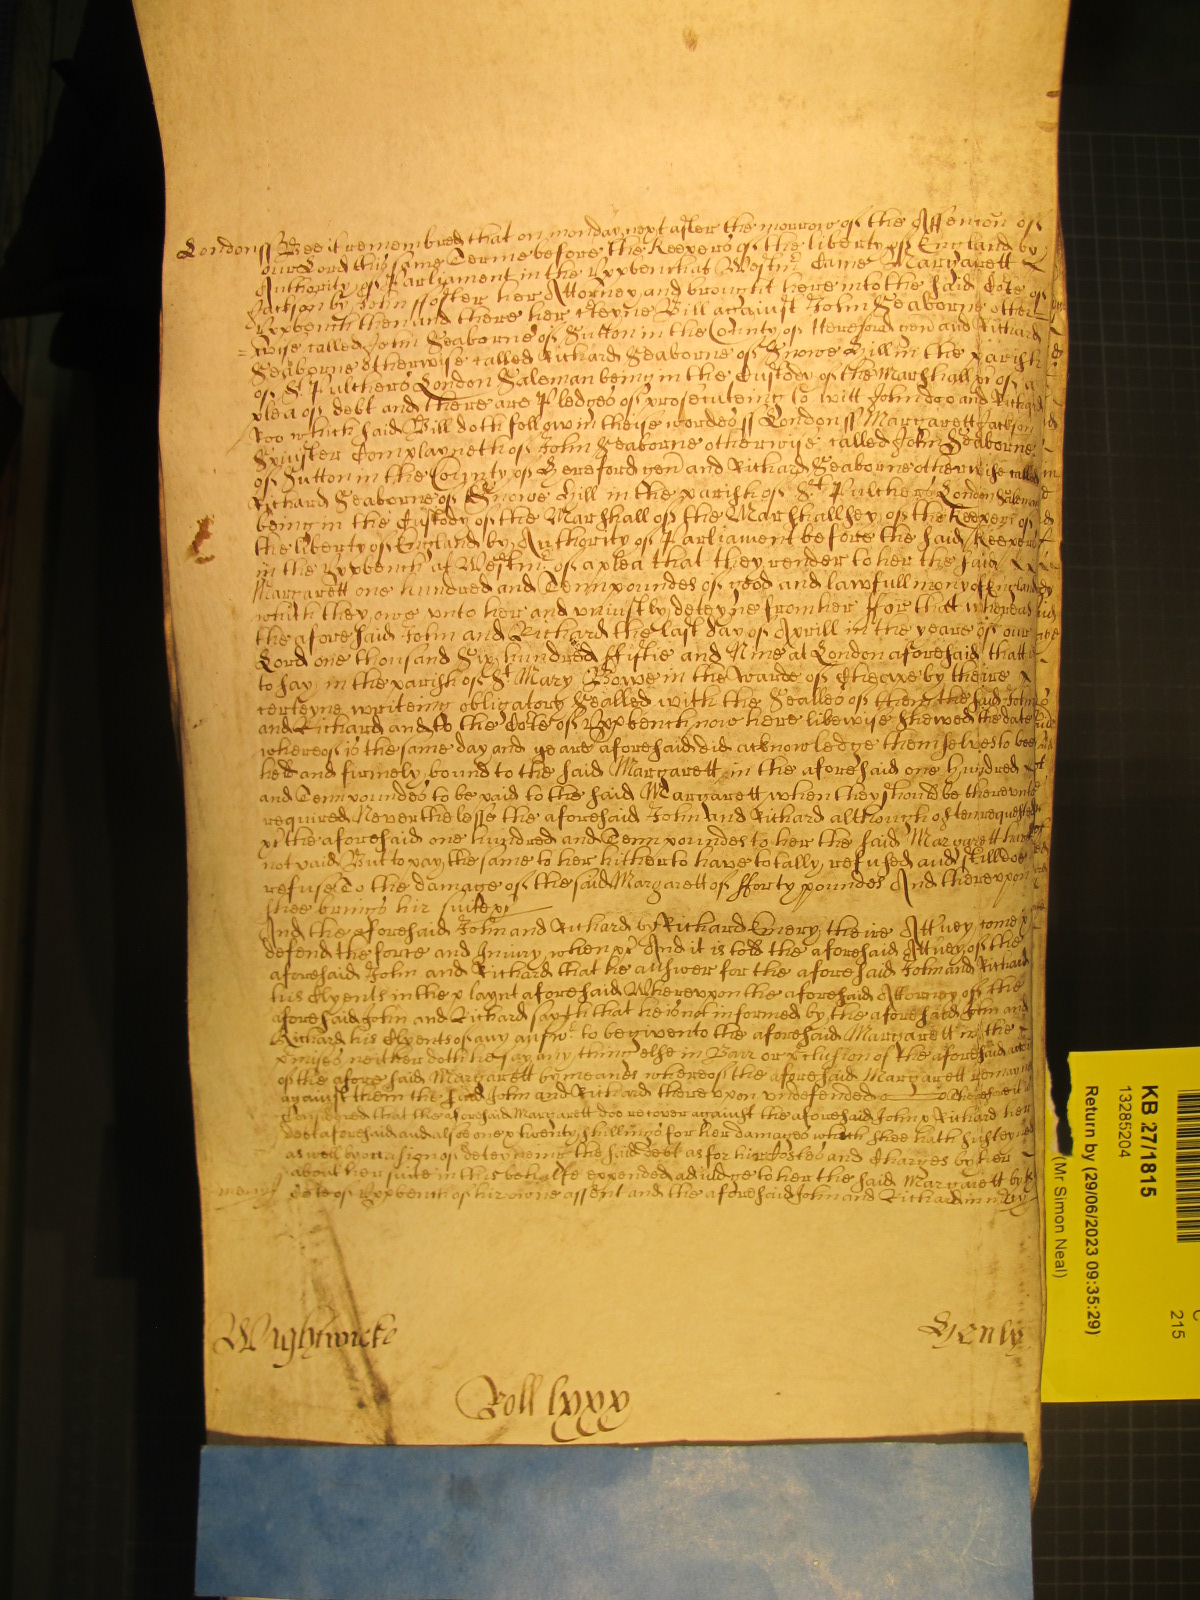 London ss Bee it remembred that on monday next after the morrow of the Assencion of
our Lord this same Terme before the Keepers of the liberty of England by
Authority of Parliament in the Vpp bench at Westmr Came Margarett
Jackson by John ffoster her Attorney and brought here into the said Cote of
Vpp bench then and there her certeyne Bill against John Seaborne other
wise called John Seaborne of Sutton in the County of Hereford gen and Richard
Seaborne otherwise called Richard Seaborne of Snowe Hill in the parish
of St Pulchers London Saleman being in the Custody of the Marshall &c of a
plea of debt and there are Pledges of prosecuteing to witt John Doo and Richard
Roo which said Bill doth follow in theise wordes ss London ss Margarett Jackson
Spinster Complayneth of John Seaborne otherwise called John Seaborne
of Sutton in the County of Hereford gen and Richard Seaborne otherwise called
Richard Seaborne of Snowe Hill in the parish of St Pulchers London Saleman
being in the Custody of the Marshall of the Marshallsey of the Keepers of
the liberty of England by Authority of Parliament before the said Keepers
in the Vpp bench at Westmr of a plea that they render to her the said
Margarett one hundred and Tenn poundes of good and lawfull mony of England
which they owe vnto her and vniustly deteyne from her ffor that whereas
the aforesaid John and Richard the last day of Aprill in the yeare of our
Lord one thousand Six hundred ffiftie and Nine at London aforesaid that is
to say in the parish of St Mary Bowe in the Warde of Cheape by theire
certeyne writeing obligatory Sealled with the Sealles of them the said John
and Richard and to the Cote of Vpp bench now here likewise shewed the date
whereof is the same day and yeare aforesaid did acknowledge themselves to bee
held and firmely bound to the said Margarett in the aforesaid one hundred
and Tenn poundes to be paid to the said Margarett when they should be therevnto
required Neverthelesse the aforesaid John and Richard although often requested
&c the aforesaid one hundred and Tenn poundes to her the said Margarett have
not paid But to pay the same to her hitherto have totally refused and still doe
refuse To the damage of the said Margarett of fforty poundes And therevpon
shee brings hir suite &c
And the aforesaid John and Richard by Richard Emery theire Attney come &
defend the force and Iniury when &c And it is told the aforesaid Attney of the
aforesaid John and Richard that he answer for the aforesaid John and Richard
his Clyents in the playnt aforesaid Wherevpon the aforesaid Attorney of the
aforesaid John and Richard sayth that he is not informed by the aforesaid John and
Richard his Clyents of any answr to be given to the aforesaid Margarett in the
pmisses neither doth he say any thing else in Barr or pclusion of the aforesaid accon
of the aforesaid Margarett by meanes whereof the aforesaid Margarett remaynes
against them the said John and Richard therevpon vndefended Therefore it is
Considered that the aforesaid Margarett doe recover against the aforesaid John & Richard her
debt aforesaid and also one & twenty shillings for her damages which shee hath susteyned
as well by occasion of deteyneing the said debt as for hir Costes and Charges by her
about hir suite in this behalfe expended adiudged to her the said Margarett by the
Cote of Vpp bench of hir owne assent and the aforesaid John and Richard in mercy
Wightwicke
Henly
Roll lxxx
KB 27/1815
13285204
Return by (29/06/2023 09:35:29)
(Mr Simon Neal)
215